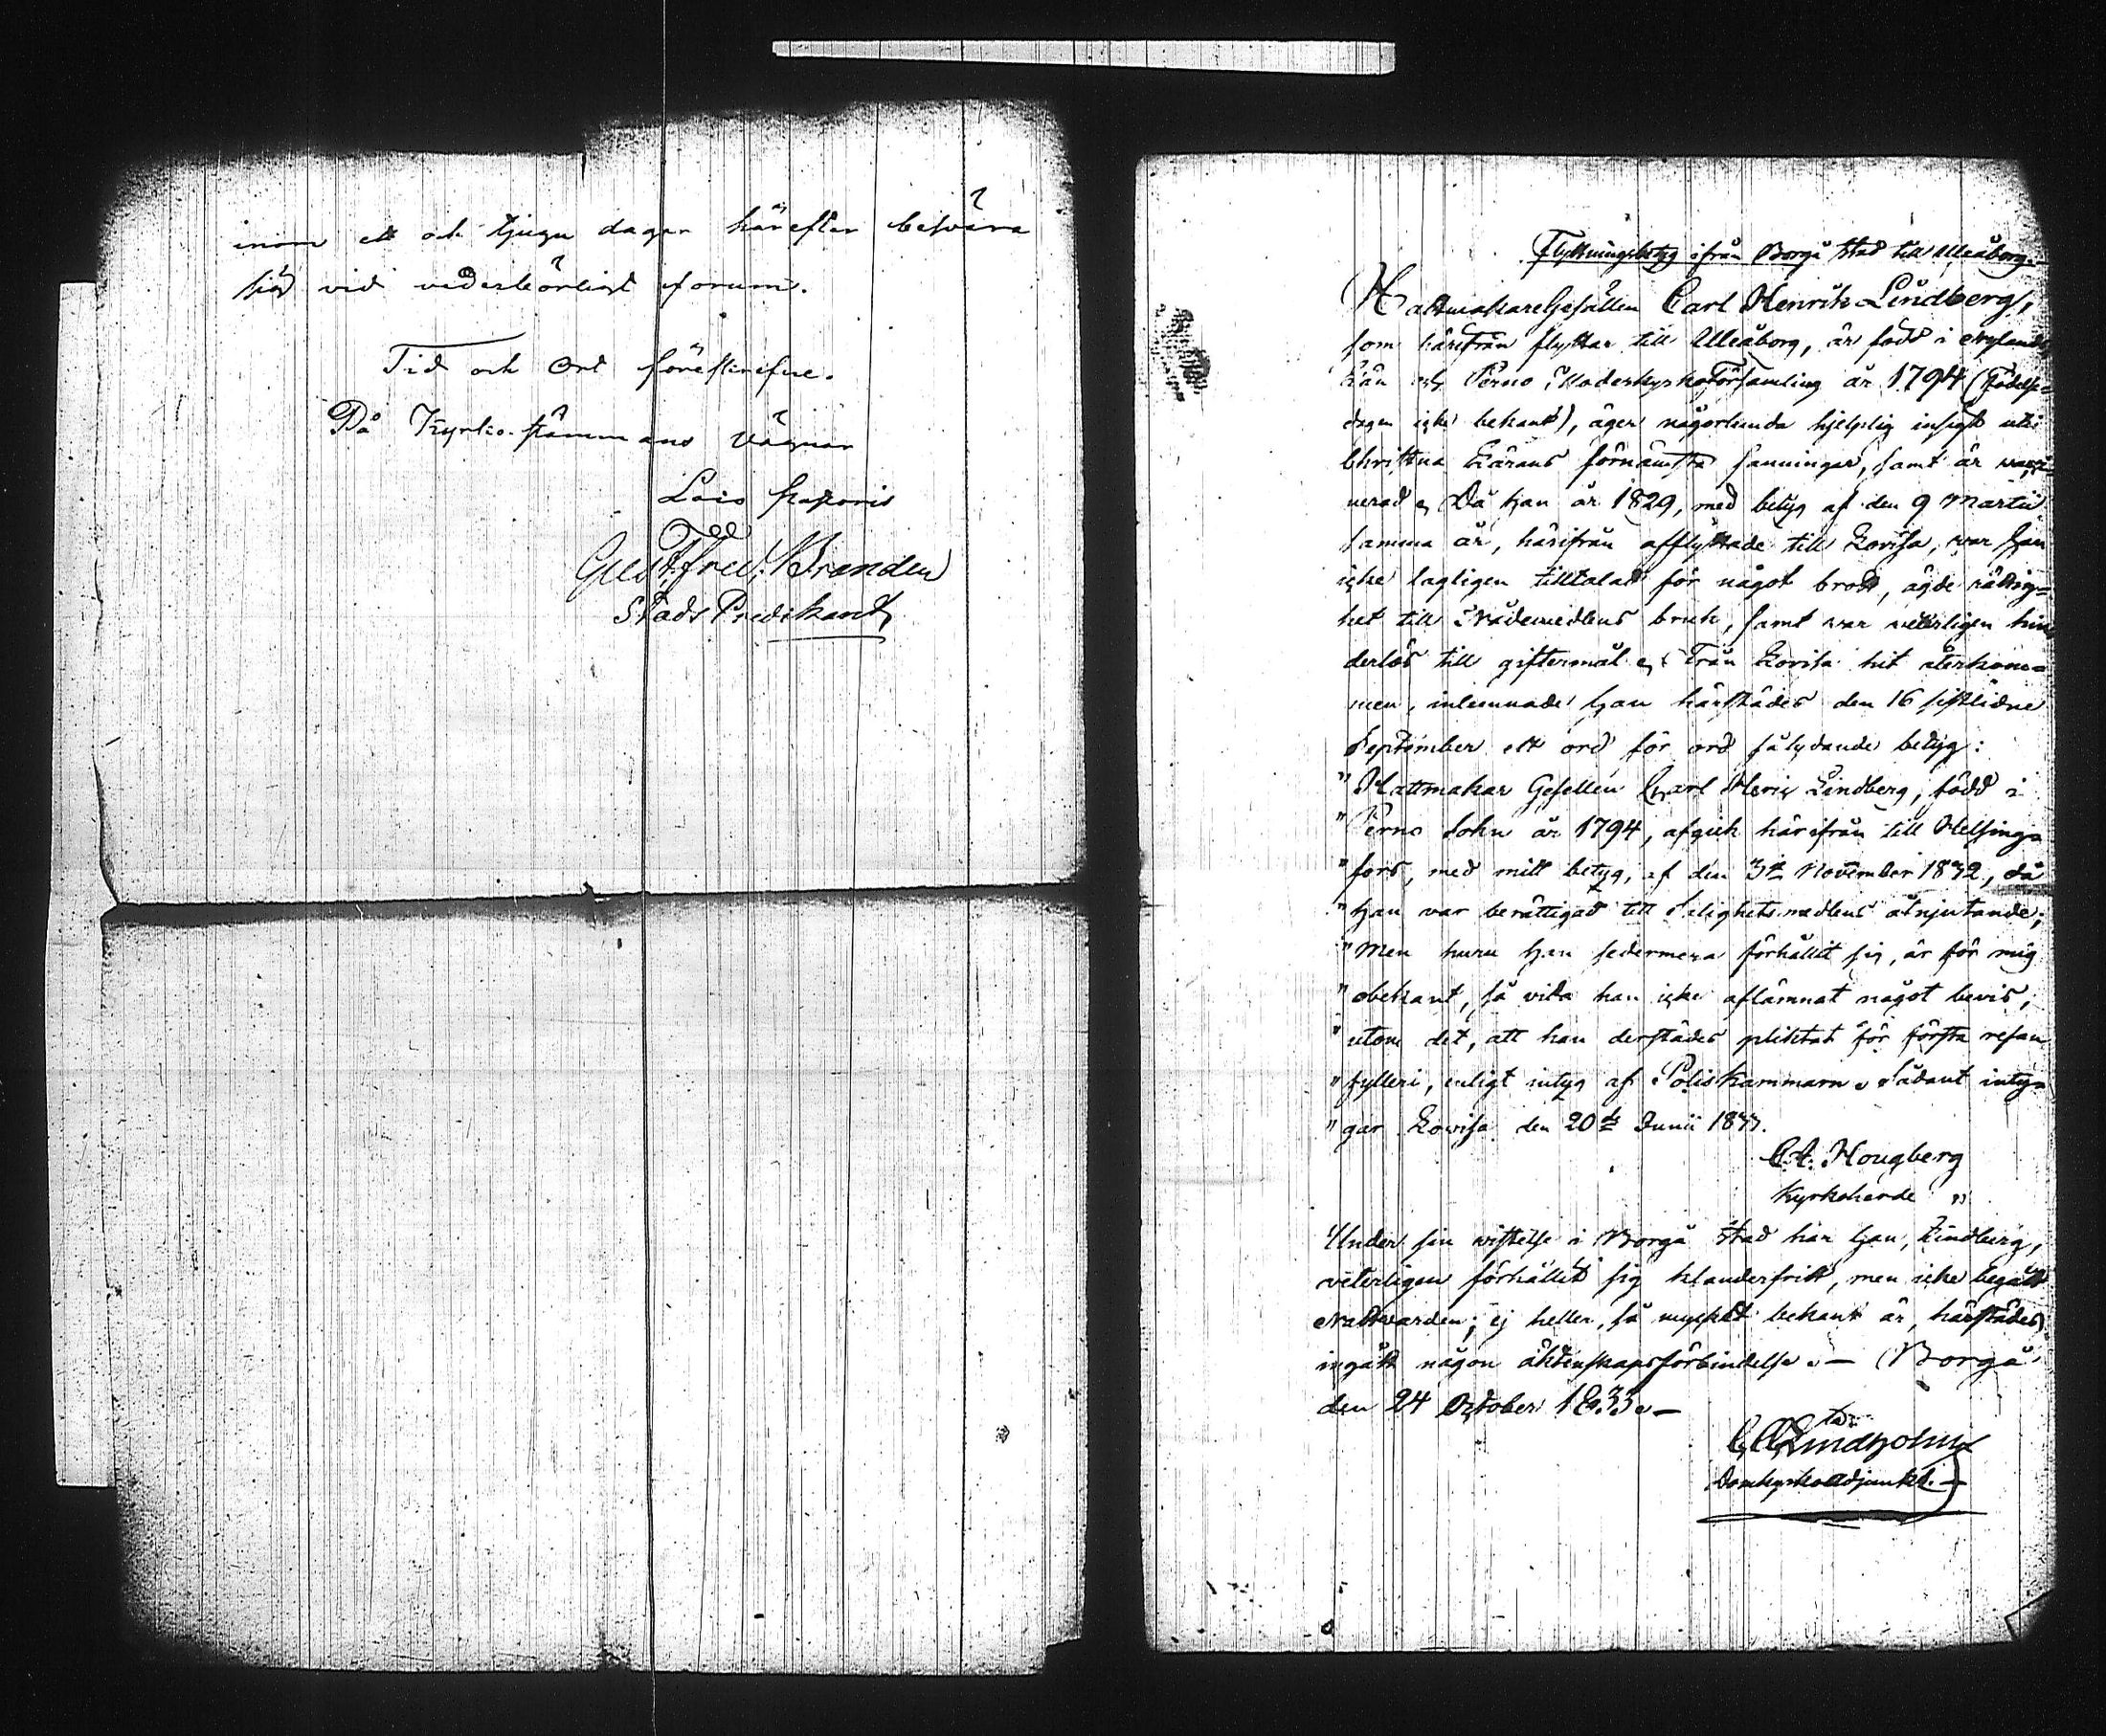 inom ett och tjugu dagar härefter besvära
sig vid vederbörligt forum.
Tid och Ort förestrefne.
På Kyrkostämmans vägnar
Gust. Fred. Branden
Stads Predikant
Flyttningsbetyg ifrån Borgå stad till Uleåborg.
HattmakareGesällen Carl Henrik Lindberg,
som härifrån flyttar till Uleåborg, är född i Nylands
Län och Perno ModerkyrkoFörsamling år 1794 (Födelse-
dagen icke bekant), äger någorlunda hjelplig insigt uti
Christna Lärans förnämsta sanningar, samt är vacci-
nerad. Då han år 1829, med betyg af den 9 Martii
samma år, härifrån afflyttade till Lovisa, war han
icke lagligen tilltalad för något brott, ägde rättig-
het till Nådemedlens bruk, samt war veterligen hin-
derlös till giftermål. Från Lovisa hit återkom-
men, inlemnade han härstädes den 16 sistlidne
September ett ord för ord så lydande betyg:
"Hattmakar Gesellen Carl Henric Lindberg, född i
"Perno Sokn år 1794, afgick härifrån till Helsing-
"fors, med mitt betyg, af den 3de November 1832, då
"han var berättigad till Salighetsmedlens åtnjutande;
"Men huru han sedermera förhållit sig, är för mig
"obekant, så vida han icke aflämnat något bevis,
"utom det, att han derstädes pliktat för första resan
"fylleri, enligt intyg af Poliskammarn. Sådant inty-
"gar Lovisa den 20de Junii 1833.
C. A. Hougberg
Kyrkoherde "
Under sin vistelse i Borgå stad har han, Lindberg,
veterligen förhållit sig klanderfritt, men icke begått
Nattvarden; ej heller, så mycket bekant är, härstädes
ingått någon äktenskapsförbindelse. — Borgå
den 24 October 1833. —
Lindholm
DomkyrkoAdjunkt. —